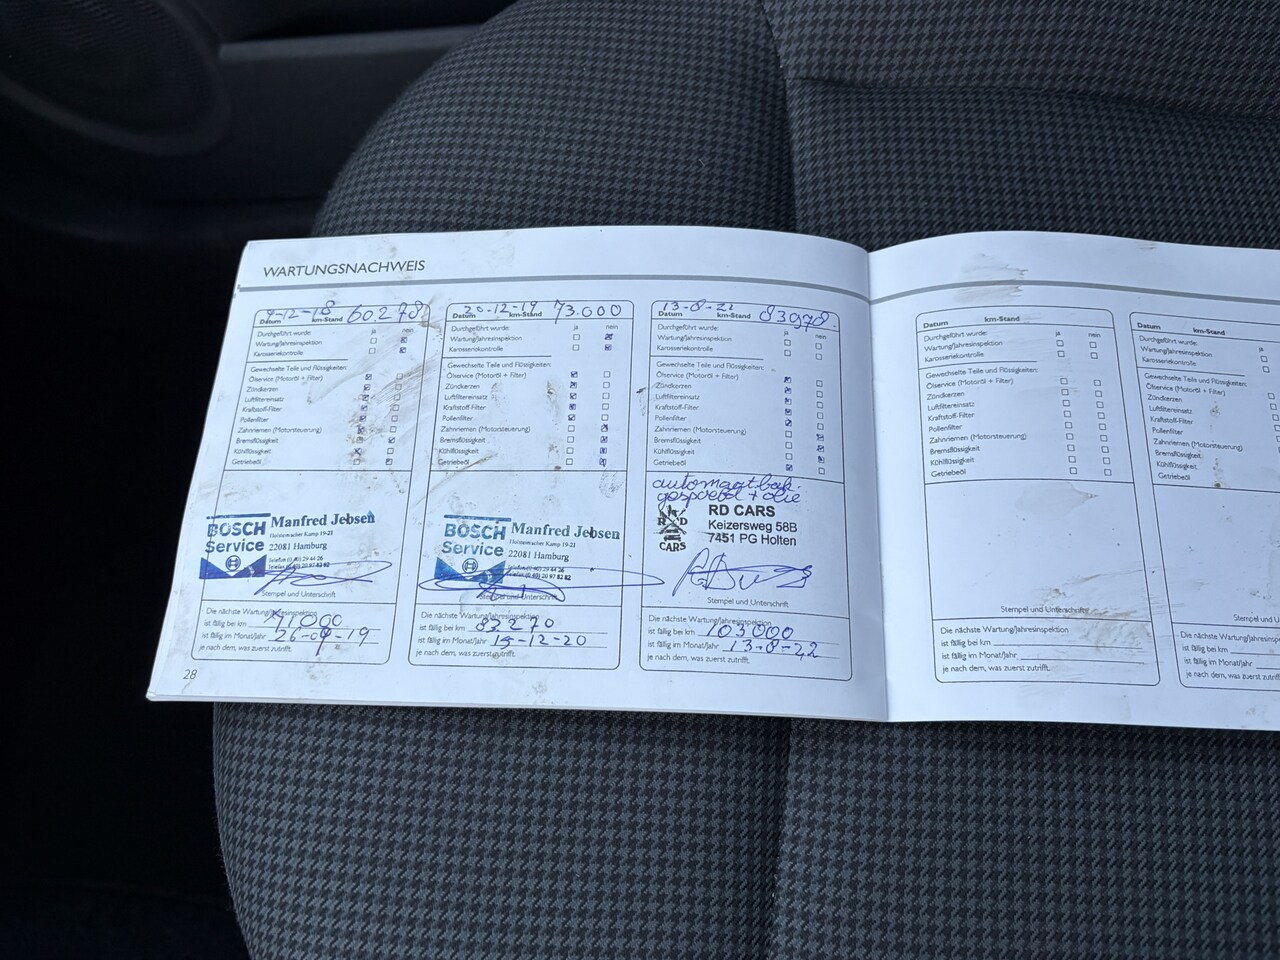 WARTUNGSNACHWEIS
7-12-18 60.278
Datum km-Stand
ja nein
Durchgeführt wurde:
Wartung/Jahresinspektion
Karosseriekontrolle
Gewechselte Teile und Flüssigkeiten:
Ölservice (Motoröl + Filter)
Zündkerzen
Luftfiltereinsatz
Kraftstoff-Filter
Pollenfilter
Zahnriemen (Motorsteuerung)
Bremsflüssigkeit
Kühlflüssigkeit
Getriebeöl
BOSCH
Service
Manfred Jebsen
Holsteinischer Kamp 19-21
22081 Hamburg
Telefon (0 40) 29 44 26
Telefax (0 40) 20 97 82 82
Stempel und Unterschrift
Die nächste Wartung/Jahresinspektion
ist fällig bei km
ist fällig im Monat/Jahr 26-09-19
je nach dem, was zuerst zutrifft.
28
20-12-19 73.000
Datum km-Stand
ja nein
Durchgeführt wurde:
Wartung/Jahresinspektion
Karosseriekontrolle
Gewechselte Teile und Flüssigkeiten:
Ölservice (Motoröl + Filter)
Zündkerzen
Luftfiltereinsatz
Kraftstoff-Filter
Pollenfilter
Zahnriemen (Motorsteuerung)
Bremsflüssigkeit
Kühlflüssigkeit
Getriebeöl
BOSCH
Service
Manfred Jebsen
Holsteinischer Kamp 19-21
22081 Hamburg
Telefon (0 40) 29 44 26
Telefax (0 40) 20 97 82 82
Stempel und Unterschrift
Die nächste Wartung/Jahresinspektion
ist fällig bei km 93270
ist fällig im Monat/Jahr 15-12-20
je nach dem, was zuerst zutrifft.
13-8-21 83978.
Datum km-Stand
ja nein
Durchgeführt wurde:
Wartung/Jahresinspektion
Karosseriekontrolle
Gewechselte Teile und Flüssigkeiten:
Ölservice (Motoröl + Filter)
Zündkerzen
Luftfiltereinsatz
Kraftstoff-Filter
Pollenfilter
Zahnriemen (Motorsteuerung)
Bremsflüssigkeit
Kühlflüssigkeit
Getriebeöl
automaatbak.
gespoeld + olie
R D
CARS
RD CARS
Keizersweg 58B
7451 PG Holten
Stempel und Unterschrift
Die nächste Wartung/Jahresinspektion
ist fällig bei km 103000
ist fällig im Monat/Jahr 13-8-22
je nach dem, was zuerst zutrifft.
Datum km-Stand
ja nein
Durchgeführt wurde:
Wartung/Jahresinspektion
Karosseriekontrolle
Gewechselte Teile und Flüssigkeiten:
Ölservice (Motoröl + Filter)
Zündkerzen
Luftfiltereinsatz
Kraftstoff-Filter
Pollenfilter
Zahnriemen (Motorsteuerung)
Bremsflüssigkeit
Kühlflüssigkeit
Getriebeöl
Stempel und Unterschrift
Die nächste Wartung/Jahresinspektion
ist fällig bei km
ist fällig im Monat/Jahr
je nach dem, was zuerst zutrifft.
Datum km-Stand
ja
Durchgeführt wurde:
Wartung/Jahresinspektion
Karosseriekontrolle
Gewechselte Teile und Flüssigkeiten:
Ölservice (Motoröl + Filter)
Zündkerzen
Luftfiltereinsatz
Kraftstoff-Filter
Pollenfilter
Zahnriemen (Motorsteuerung)
Bremsflüssigkeit
Kühlflüssigkeit
Getriebeöl
Stempel und U
Die nächste Wartung/Jahresinspektion
ist fällig bei km
ist fällig im Monat/Jahr
je nach dem, was zuerst zutrifft.